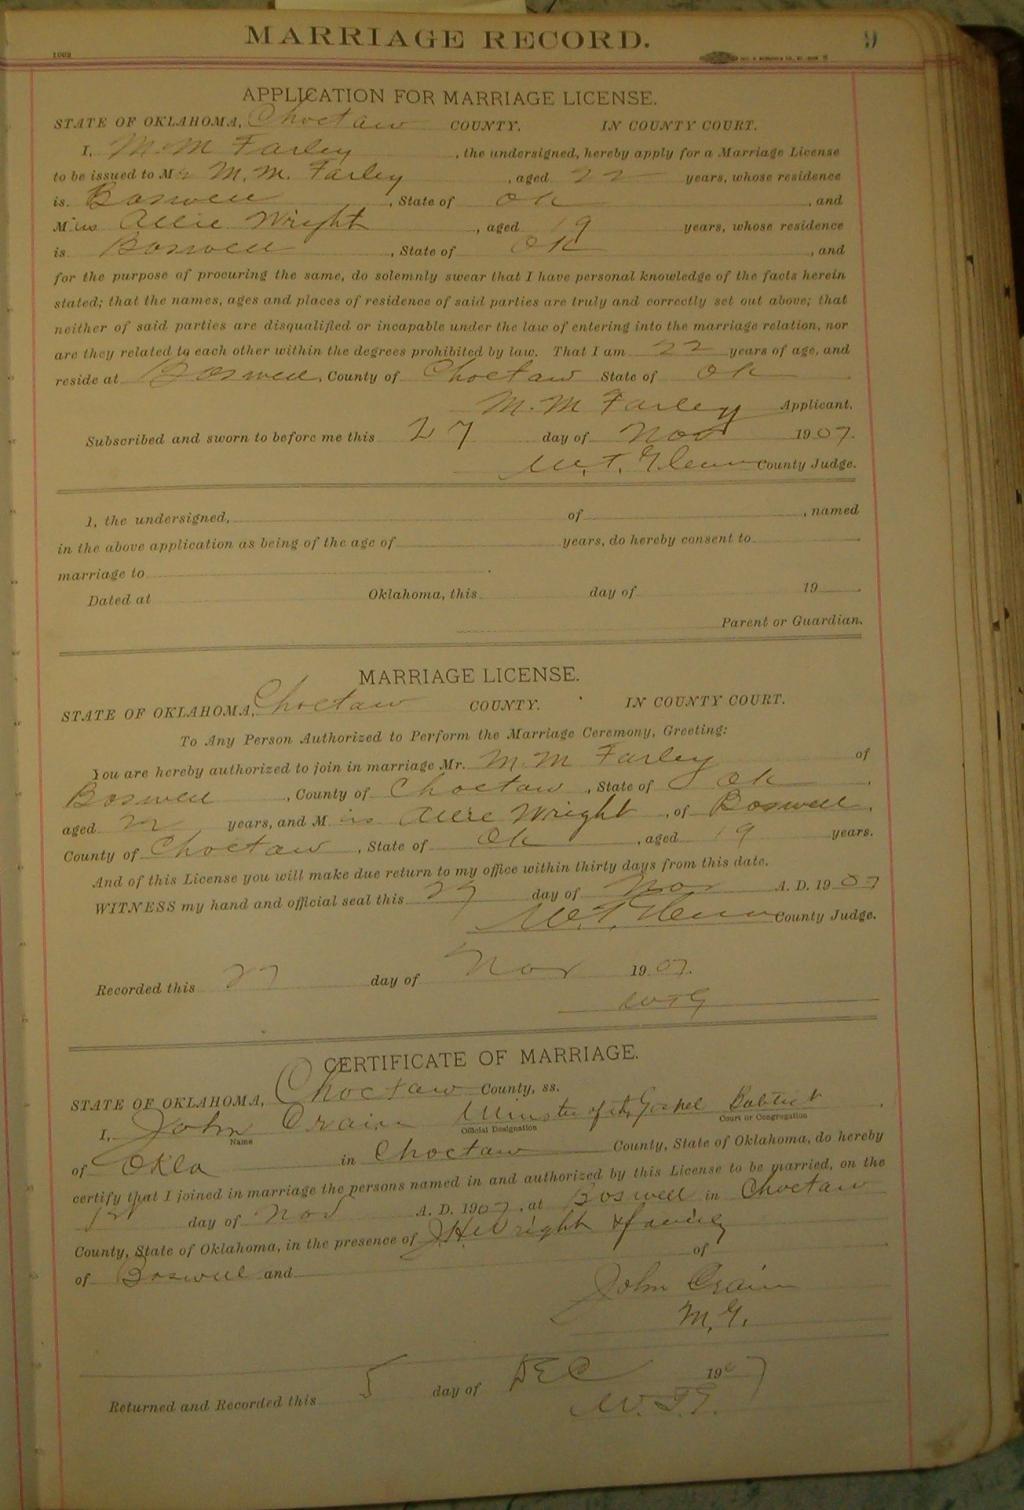 MARRIAGE RECORD. 9
1002
APPLICATION FOR MARRIAGE LICENSE.
STATE OF OKLAHOMA, Choctaw COUNTY. IN COUNTY COURT.
I, M. M Farley, the undersigned, hereby apply for a Marriage License
to be issued to Mr M. M. Farley, aged 22 years, whose residence
is Boswell, State of Ok, and
Miss Allie Wright, aged 19 years, whose residence
is Boswell, State of Ok, and
for the purpose of procuring the same, do solemnly swear that I have personal knowledge of the facts herein
stated; that the names, ages and places of residence of said parties are truly and correctly set out above; that
neither of said parties are disqualified or incapable under the law of entering into the marriage relation, nor
are they related to each other within the degrees prohibited by law. That I am 22 years of age, and
reside at Boswell, County of Choctaw State of Ok
M. M Farley Applicant.
Subscribed and sworn to before me this 27 day of Nov 1907.
W. T. Glenn County Judge.
I, the undersigned, of , named
in the above application as being of the age of years, do hereby consent to
marriage to .
Dated at Oklahoma, this day of 19
Parent or Guardian.
MARRIAGE LICENSE.
STATE OF OKLAHOMA, Choctaw COUNTY. IN COUNTY COURT.
To Any Person Authorized to Perform the Marriage Ceremony, Greeting:
You are hereby authorized to join in marriage Mr. M. M Farley of
Boswell, County of Choctaw, State of Ok,
aged 22 years, and Miss Allie Wright, of Boswell,
County of Choctaw, State of Ok, aged 19 years.
And of this License you will make due return to my office within thirty days from this date.
WITNESS my hand and official seal this 27 day of Nov A. D. 1907
W. T. Glenn County Judge.
Recorded this 27 day of Nov 1907.
WTG
CERTIFICATE OF MARRIAGE.
STATE OF OKLAHOMA, Choctaw County, ss.
I, John Crain Minister of the Gospel Babtist
Name Official Designation Court or Congregation
of Okla in Choctaw County, State of Oklahoma, do hereby
certify that I joined in marriage the persons named in and authorized by this License to be married, on the
1st day of Nov A. D. 1907, at Boswell in Choctaw
County, State of Oklahoma, in the presence of J H Wright & family
of Boswell and of
John Crain
M. G.
Returned and Recorded this 5 day of DEC 1907
W. T. G.